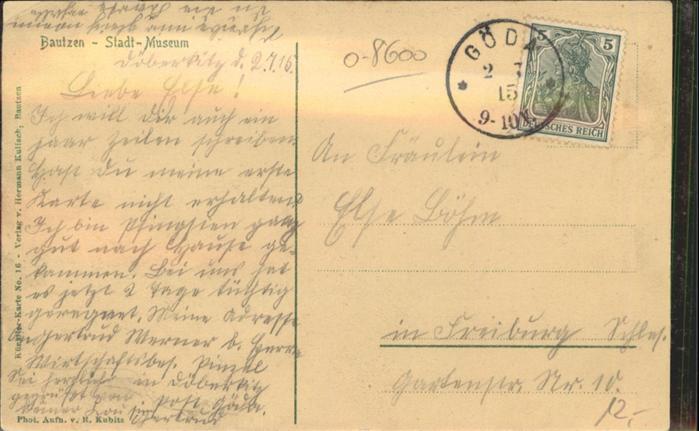 Bautzen - Stadt-Museum
Döberkitz d. 2.7.15.
Liebe Else!
Ich will dir auch ein
paar Zeilen schreiben
hast du meine erste
Karte nicht erhalten
Ich bin Pfingsten ganz
gut nach Hause ge-
kommen. Bei uns hat
es jetzt 2 Tage tüchtig
geregnet. Meine Adresse
An Gertrud Werner b. Herrn
Wirtschaftsbes.
Sei herzlich in Döberkitz
gegrüßt von Post Göda.
deiner
Gertrud
Phot. Aufn. v. R. Kubitz
Künstler-Karte No. 16 - Verlag v. Hermann Kullack; Bautzen
0-8600
GÖDA
2 7
15
9-10V.
5
DEUTSCHES REICH
An Fräulein
Else Böhm
in Freiburg Schles.
Gartenstr. Nr. 10.
12,-